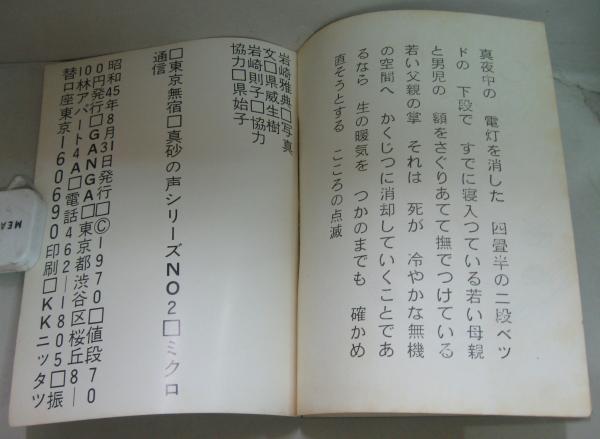 真夜中の 電灯を消した 四畳半の二段ベッ
ドの 下段で すでに寝入つている若い母親
と男児の 額をさぐりあてて撫でつけている
若い父親の掌 それは 死が 冷やかな無機
の空間へ かくじつに消却していくことであ
るなら 生の暖気を つかのまでも 確かめ
直そうとする こころの点滅
岩崎雅典□写真
文□県威生樹
岩崎則子□協力
協力□県始子
□東京無宿□真砂の声シリーズNO2□ミクロ
通信
昭和45年8月31日発行□©1970□値段70
0円発行□GANGA□東京都渋谷区桜丘8ー
10林アパート4A□電話462ー1805□振
替口座東京ー60690印刷□KKニッタツ
MEA